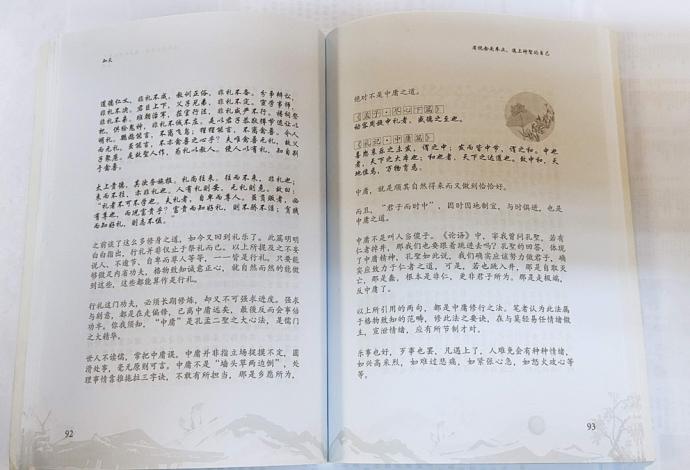 知天
道德仁义，非礼不成，教训正俗，非礼不备。分争辨讼，
非礼不决。君臣上下，父子兄弟，非礼不定。宦学事师，
非礼不亲。班朝治军，莅官行法，非礼威严不行。祷祠祭
祀，供给鬼神，非礼不诚不庄。是以君子恭敬撙节退让以
明礼。鹦鹉能言，不离飞鸟；猩猩能言，不离禽兽。今人
而无礼，虽能言，不亦禽兽之心乎？夫唯禽兽无礼，故父
子聚麀。是故圣人作，为礼以教人。使人以有礼，知自别
于禽兽。
太上贵德，其次务施报。礼尚往来。往而不来，非礼也；
来而不往，亦非礼也。人有礼则安，无礼则危。故曰，
“礼者不可不学也。夫礼者，自卑而尊人。虽负贩者，必
有尊也，而况富贵乎？富贵而知好礼，则不骄不淫；贫贱
而知好礼，则志不慑。”
之前谈了这么多修身之道，如今又回到礼乐了。此篇明明
白白指出，行礼并非仅止于祭礼而已。以上所提及之不妄
说人、不逾节、自卑而尊人等等，一一皆是行礼。只要能
够做足内客功夫，格物致知诚意正心，就自然而然的能做
到这些，这些都能算作是行礼。
行礼这门功夫，必须长期修炼，却又不可强求进度。强求
与刻意，都是在走偏锋，已离中庸远去，最后反而会事倍
功半。你我须知，“中庸”是孔孟二圣之大心法，是儒门
之大精华。
世人不读儒，常把中庸误。中庸并非指立场捉摸不定，圆
滑处事，毫无原则可言。中庸不是“墙头草两边倒”，处
理事情靠推拖拉三字诀，不敢有所担当，那是乡愿所为，
92
绝对不是中庸之道。
《孟子·尽心下篇》
动容周旋中礼者，盛德之至也。
《礼记·中庸篇》
喜怒哀乐之未发，谓之中；发而皆中节，谓之和。中也
者，天下之大本也；和也者，天下之达道也。致中和，天
地位焉，万物育焉。
中庸，就是顺其自然得来而又做到恰恰好。
而且，“君子而时中”，因时因地制宜，与时俱进，也是
中庸之道。
中庸不是叫人当傻子。《论语》中，宰我曾问孔圣，若有
仁者掉井，那我们也要跟着跳进去吗？孔圣的回答，体现
了中庸精神，孔圣如此说，我们确实应该努力做君子，确
实应致力于仁者之道，可是，若也跳入井，那是自取灭
亡，那是蠢，根本是非仁，更非君子所为。那是走极端，
反中庸了。
以上所引用的两句，都是中庸修行之法。笔者认为此法属
于格物致知的范畴，修此法之要诀，在与莫轻易任情绪做
主，宣泄情绪，应有所节制才对。
乐事也好，歹事也罢，凡遇上了，人难免会有种种情绪，
如兴高采烈，如难过悲痛，如紧张心急，如怒火攻心等
等。
93